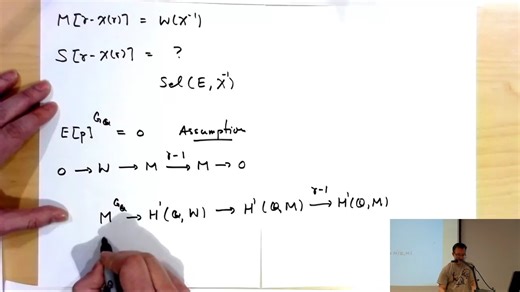 M[γ-χ(γ)] = W(χ⁻¹)
S[γ-χ(γ)] = ?
Sel(E, χ⁻¹)
E[p]^{G_Q} = 0 Assumption
0 → W → M →^{γ-1} M → 0
M^{G_Q} → H¹(Q, W) → H¹(Q, M) →^{γ-1} H¹(Q, M)